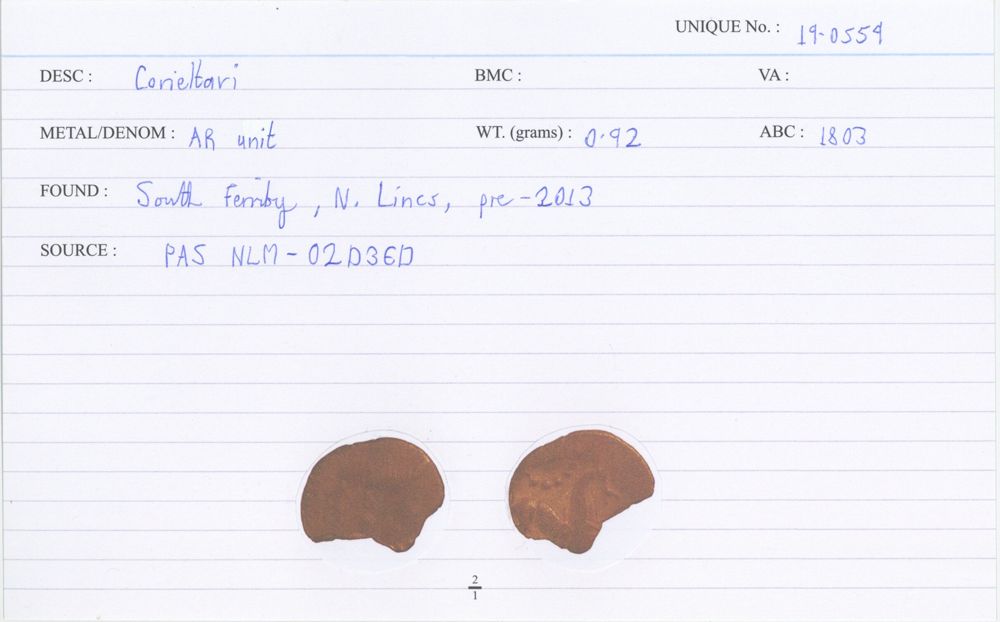 UNIQUE No. : 19-0554
DESC : Corieltavi BMC : VA :
METAL/DENOM : AR unit WT. (grams) : 0.92 ABC : 1803
FOUND : South Ferriby, N. Lincs, pre-2013
SOURCE : PAS NLM-02D3ED
2
1